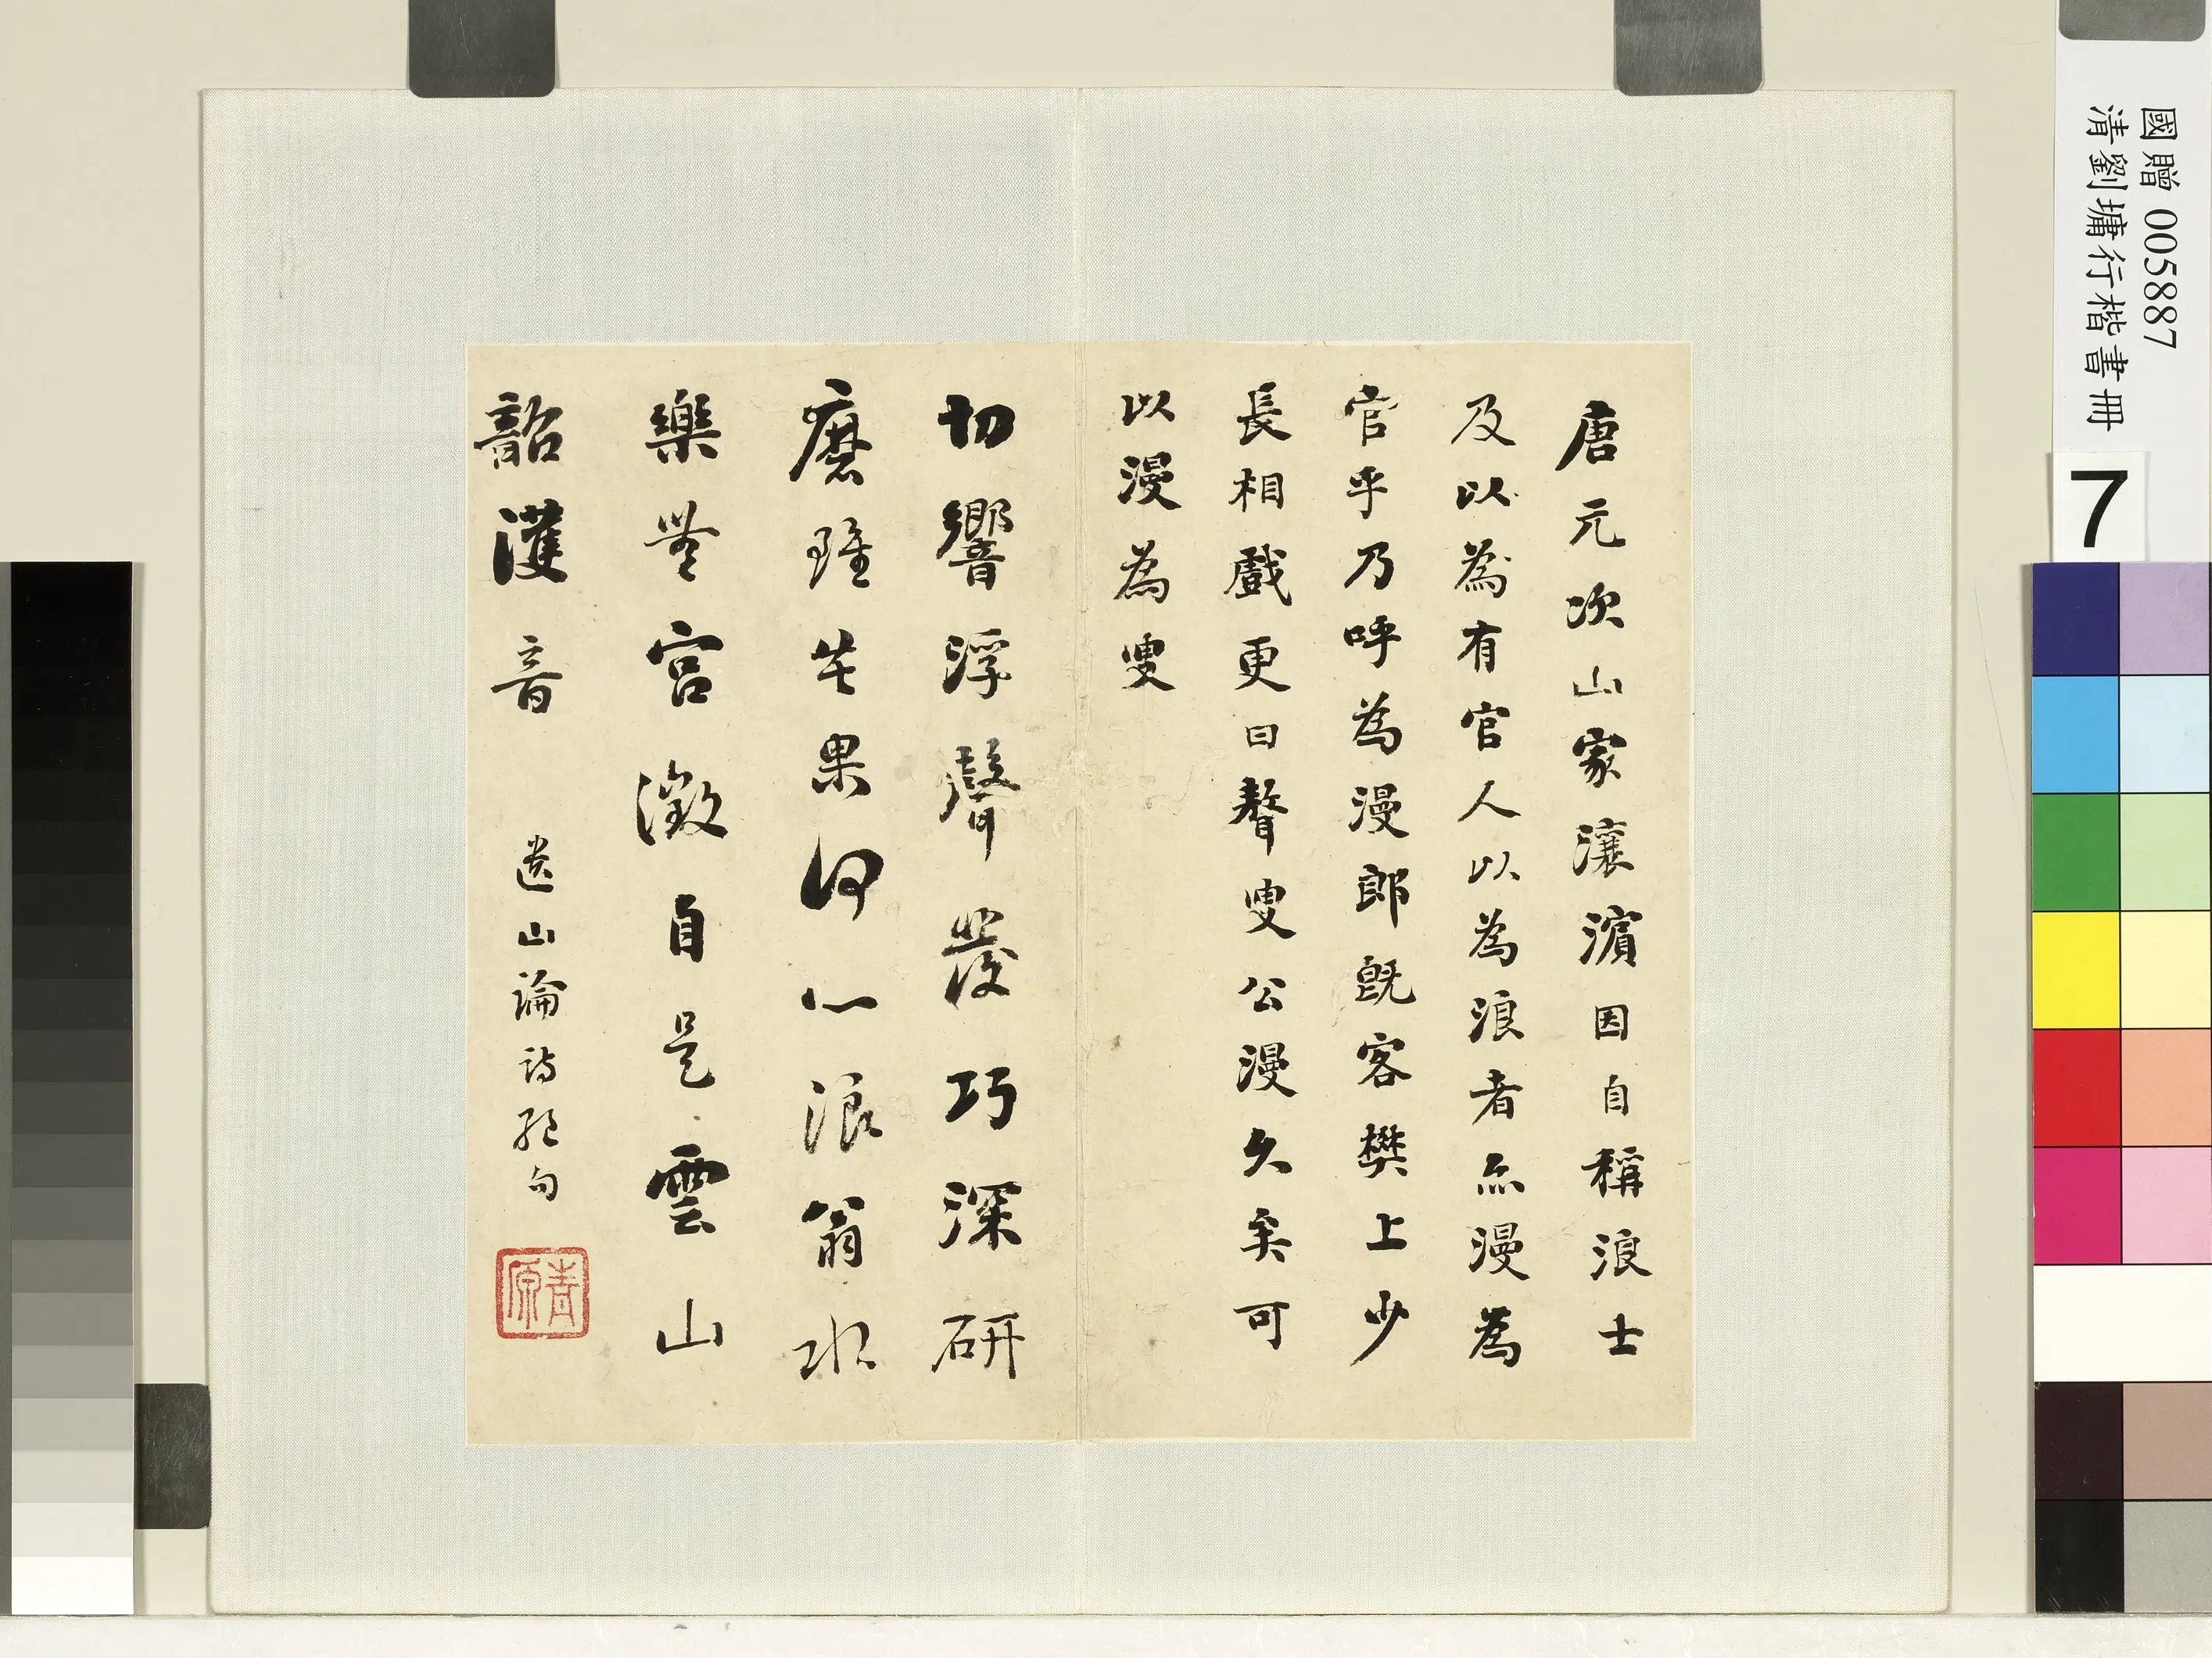 國贈 005887
清劉墉行楷書冊
7
唐元次山家瀼濱因自稱浪士
及以為有官人以為浪者亦漫為
官乎乃呼為漫郎既客樊上少
長相戲更曰聱叟公漫久矣可
以漫為叟
切響浮聲發巧深研
磨雖苦果何心浪翁水
樂無宮徵自是雲山
韶濩音 遺山論詩絕句
青原